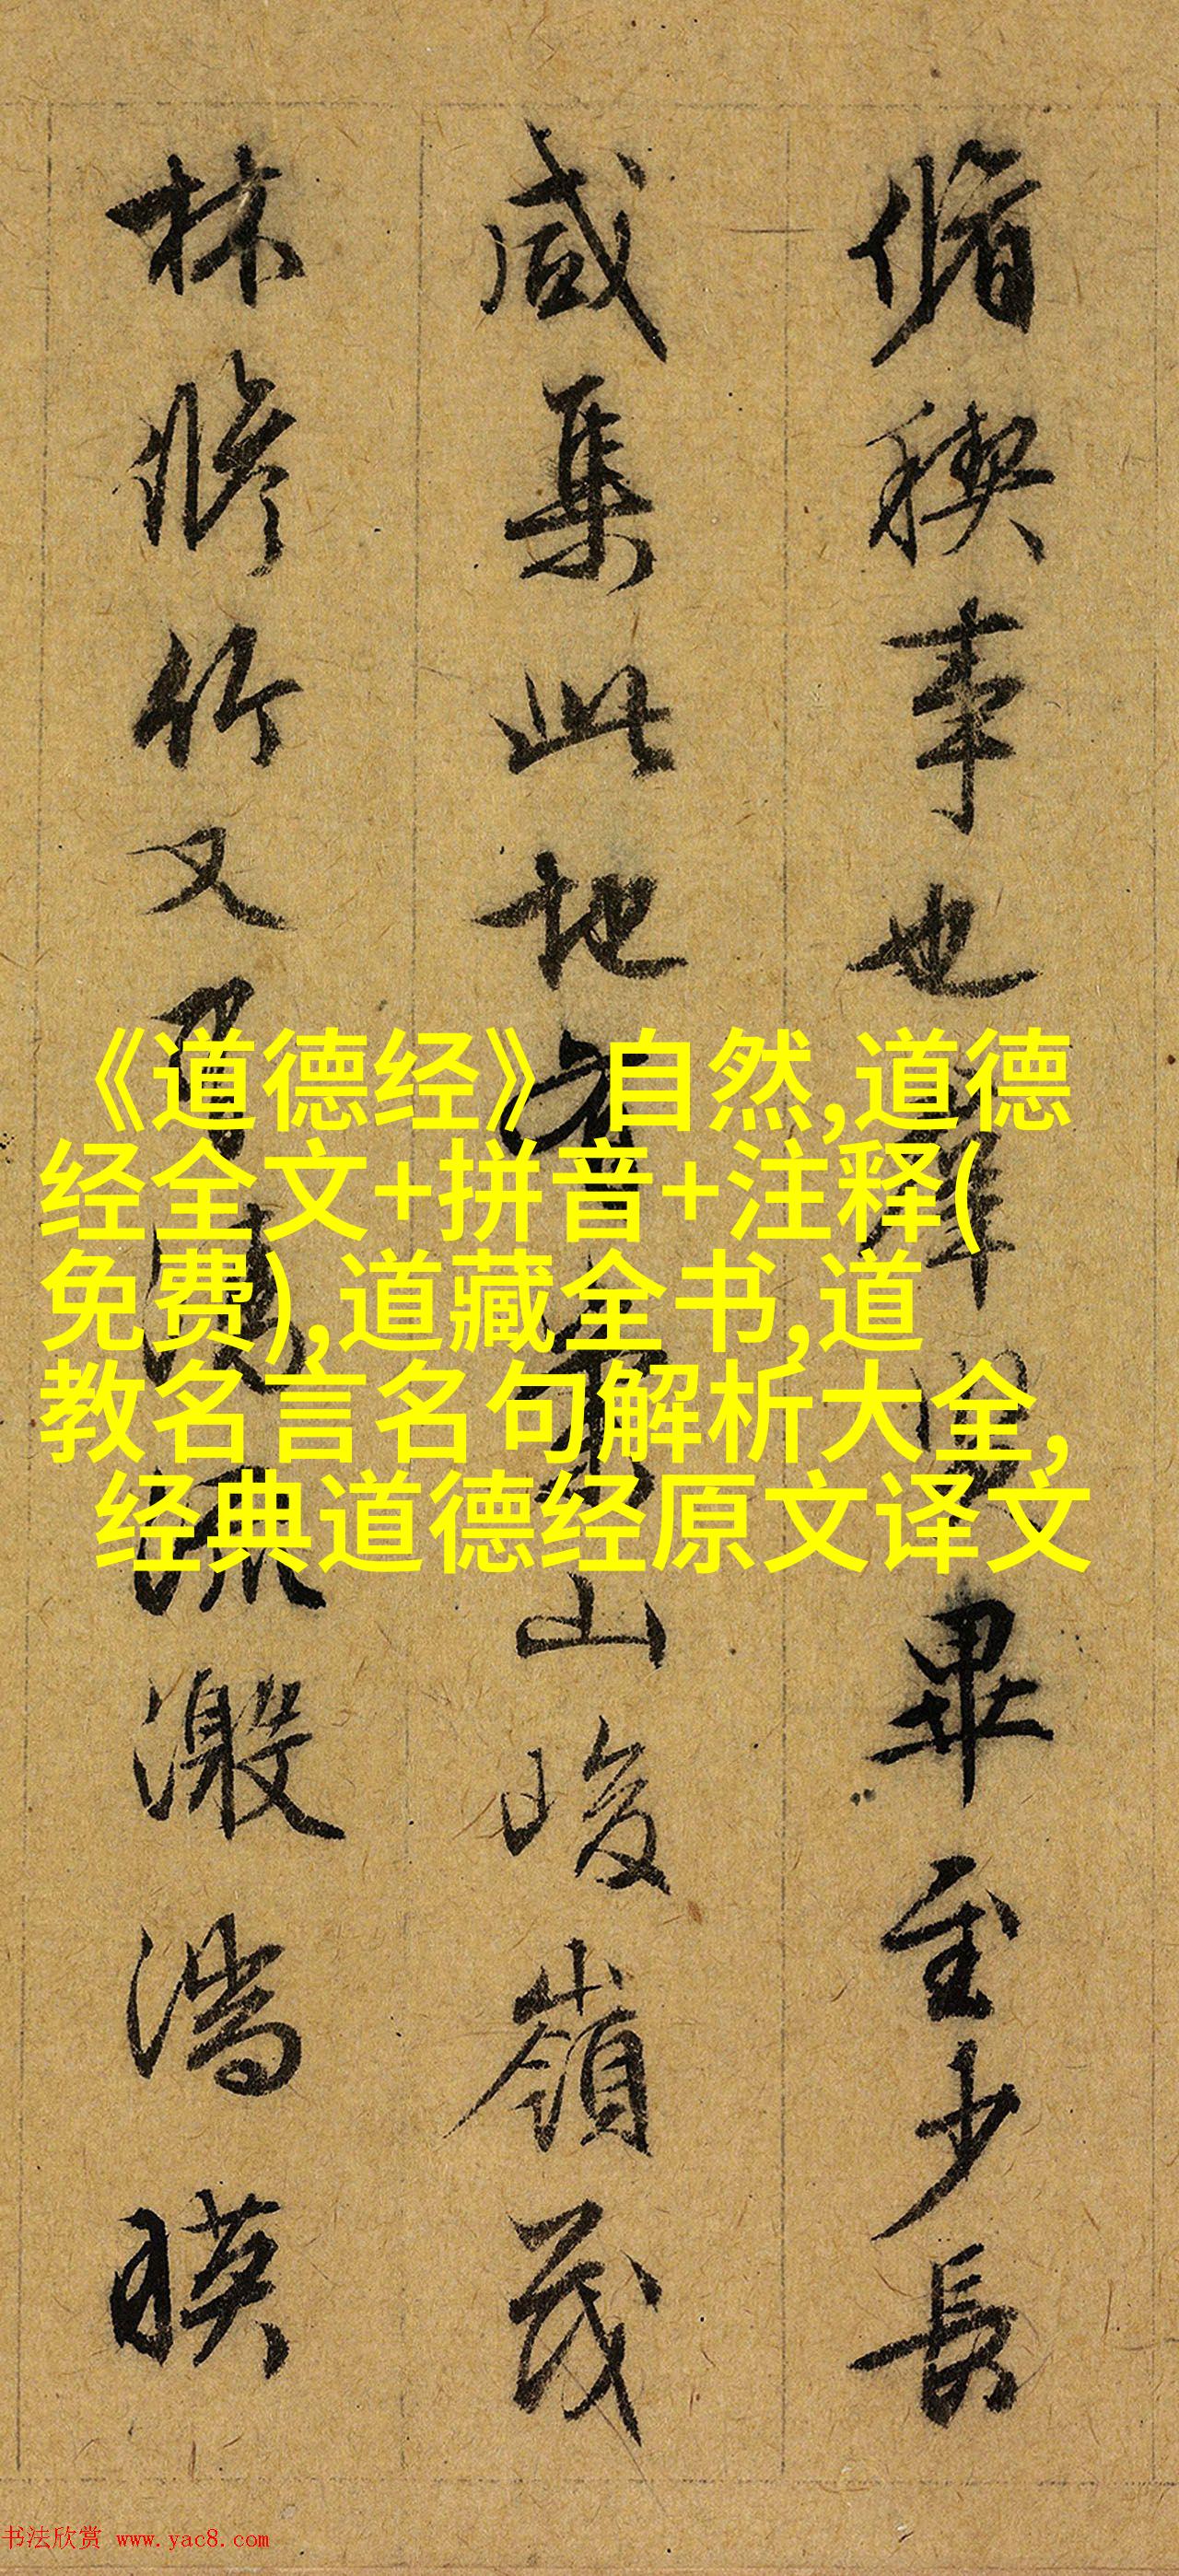 脩稧事也群賢畢至少長
咸集此地有崇山峻嶺茂
林脩竹又有清流激湍暎
《道德经》自然,道德
经全文+拼音+注释(
免费),道藏全书,道
教名言名句解析大全,
经典道德经原文译文
书法欣赏 www.yac8.com